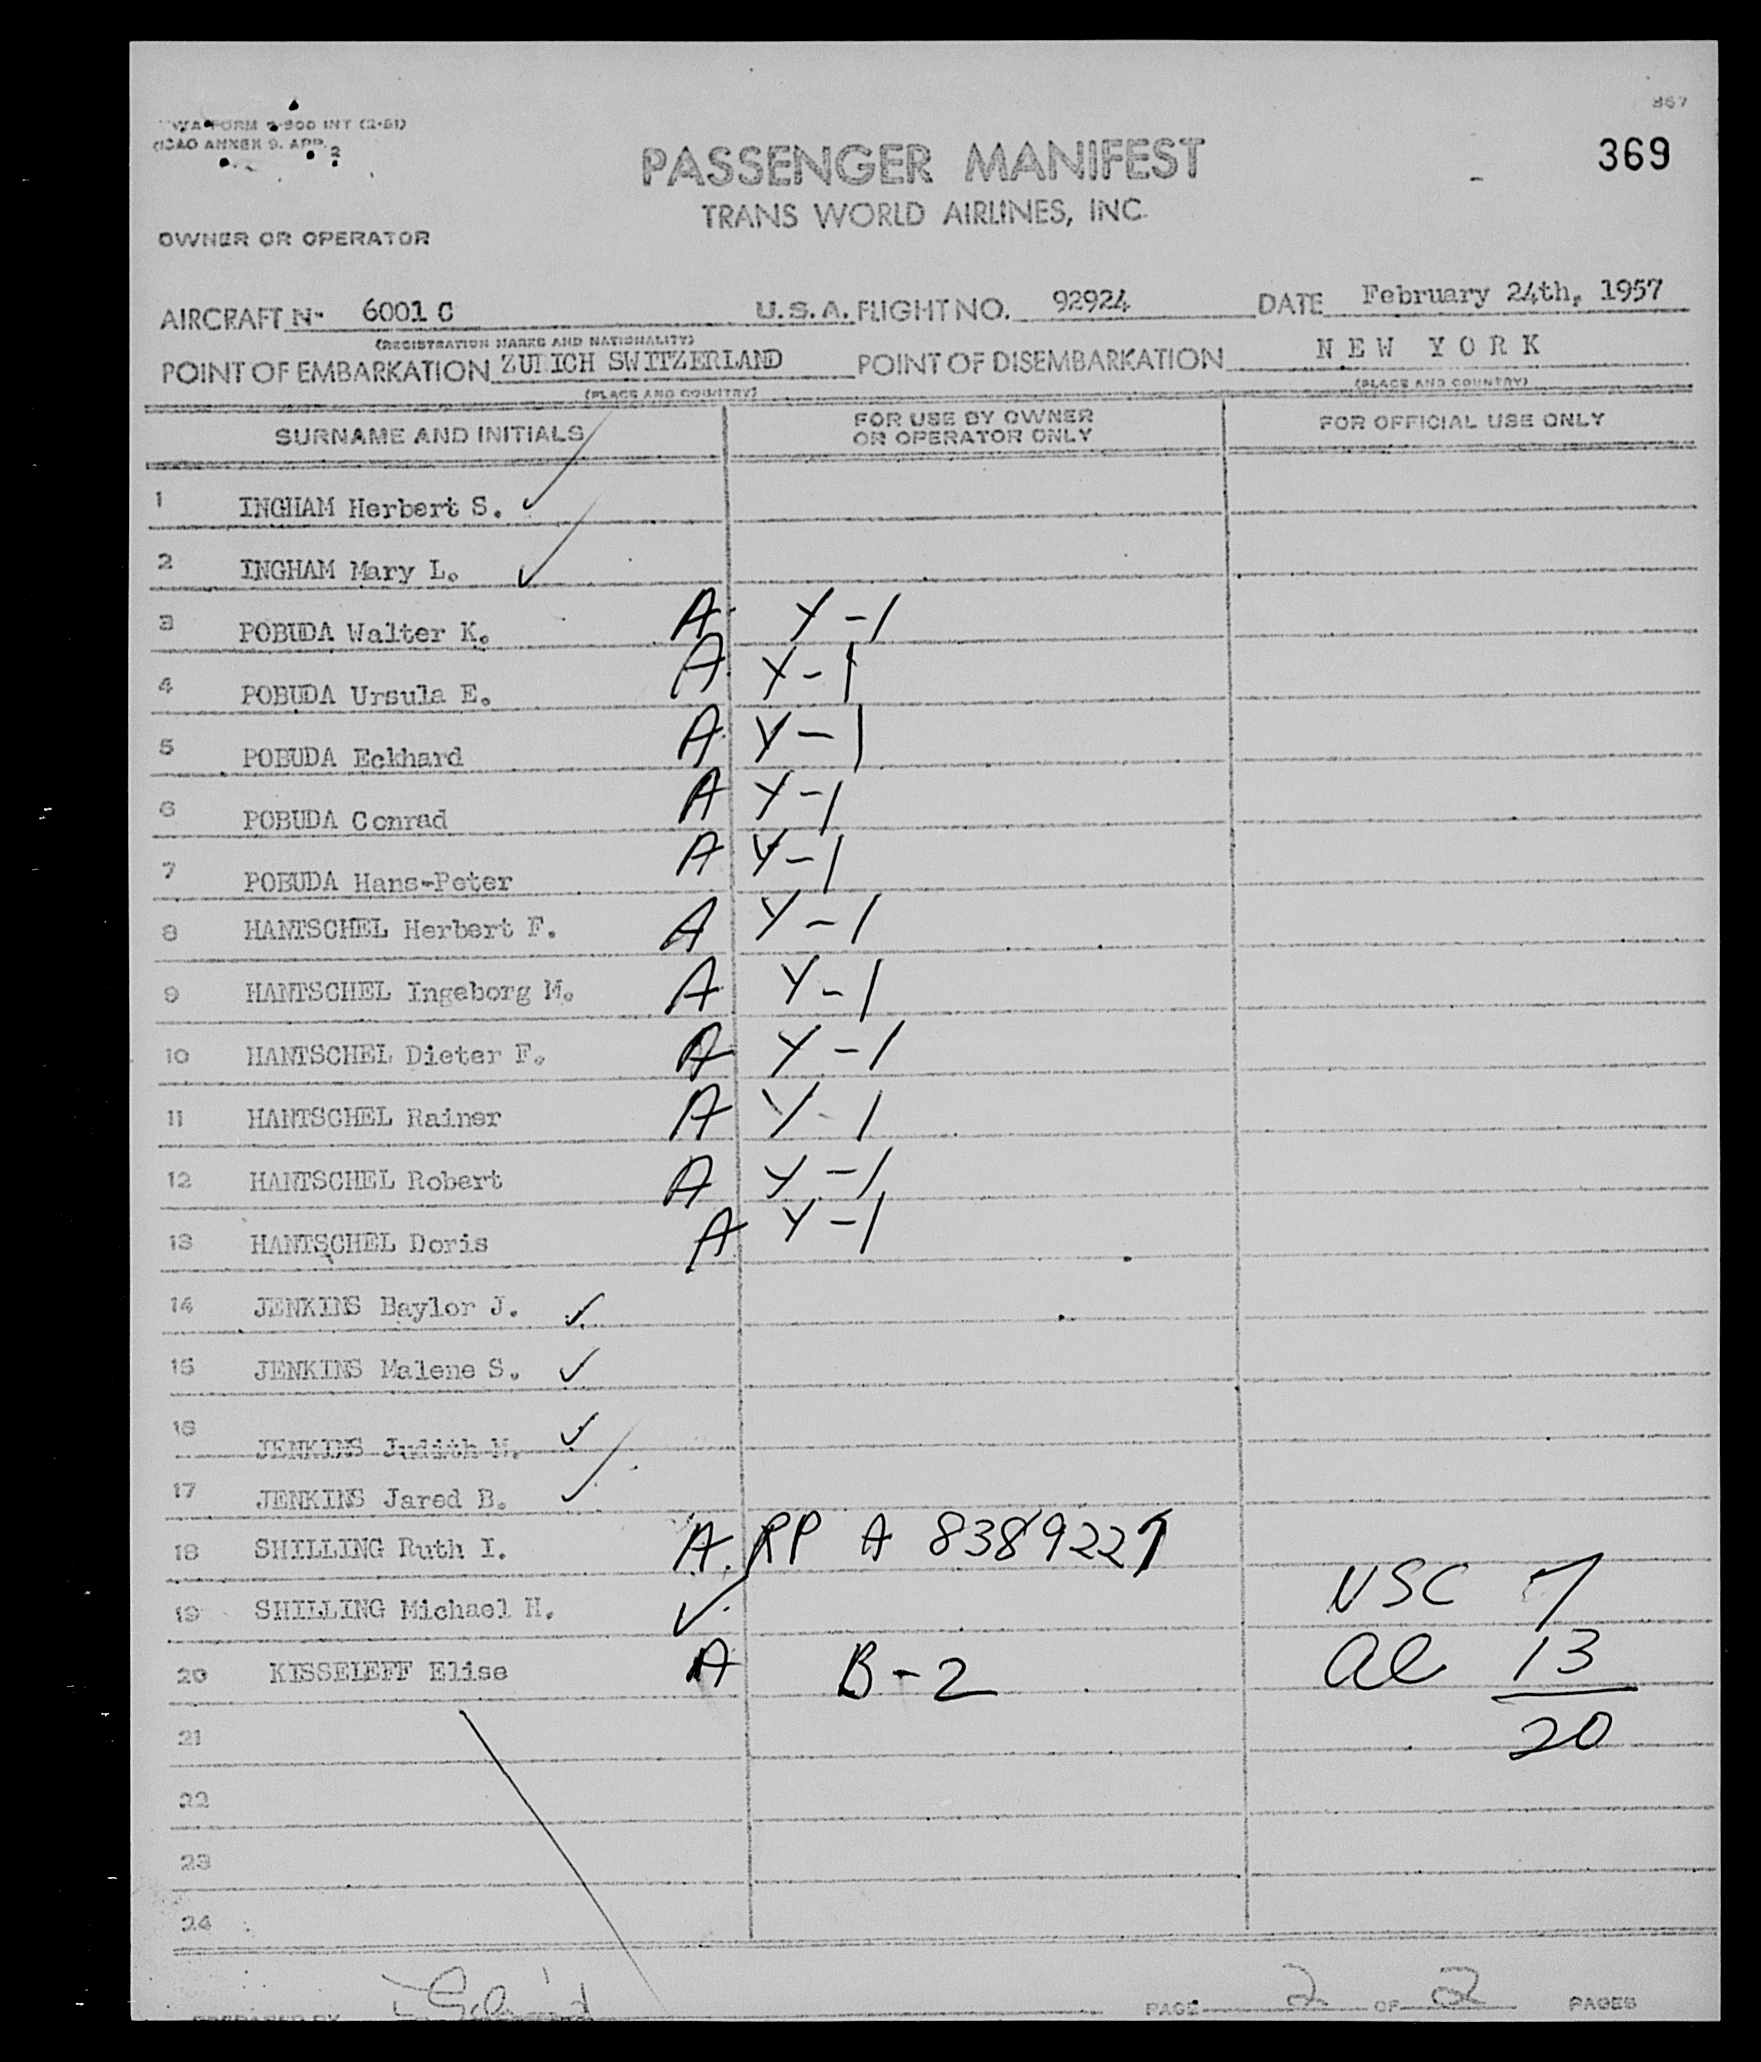 TWA FORM 2-500 INT (2-51)
(ICAO ANNEX 9. APP. 2
367
369
PASSENGER MANIFEST
TRANS WORLD AIRLINES, INC.
OWNER OR OPERATOR
AIRCRAFT N- 6001 C U.S.A. FLIGHT NO. 92924 DATE February 24th, 1957
(REGISTRATION MARKS AND NATIONALITY)
POINT OF EMBARKATION ZURICH SWITZERLAND POINT OF DISEMBARKATION NEW YORK
(PLACE AND COUNTRY) (PLACE AND COUNTRY)
SURNAME AND INITIALS FOR USE BY OWNER OR OPERATOR ONLY FOR OFFICIAL USE ONLY
1 INGHAM Herbert S. ✓
2 INGHAM Mary L. ✓
3 POBUDA Walter K. A Y-1
4 POBUDA Ursula E. A Y-1
5 POBUDA Eckhard A Y-1
6 POBUDA Conrad A Y-1
7 POBUDA Hans-Peter A Y-1
8 HANTSCHEL Herbert F. A Y-1
9 HANTSCHEL Ingeborg M. A Y-1
10 HANTSCHEL Dieter F. A Y-1
11 HANTSCHEL Rainer A Y-1
12 HANTSCHEL Robert A Y-1
13 HANTSCHEL Doris A Y-1
14 JENKINS Baylor J. ✓
15 JENKINS Malene S. ✓
16 JENKINS Judith M. ✓
17 JENKINS Jared B. ✓
18 SHILLING Ruth I. A. RP A 8389227
19 SHILLING Michael H. ✓ USC 7
20 KISSELEFF Elise A B-2 al 13
21 20
22
23
24
PREPARED BY PAGE 2 OF 2 PAGES